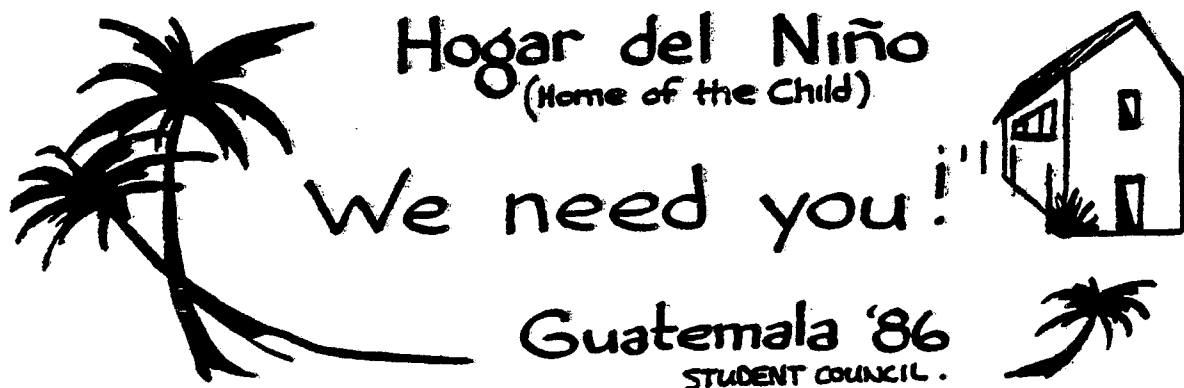 Hogar del Niño
(Home of the Child)
We need you!
Guatemala '86
STUDENT COUNCIL.